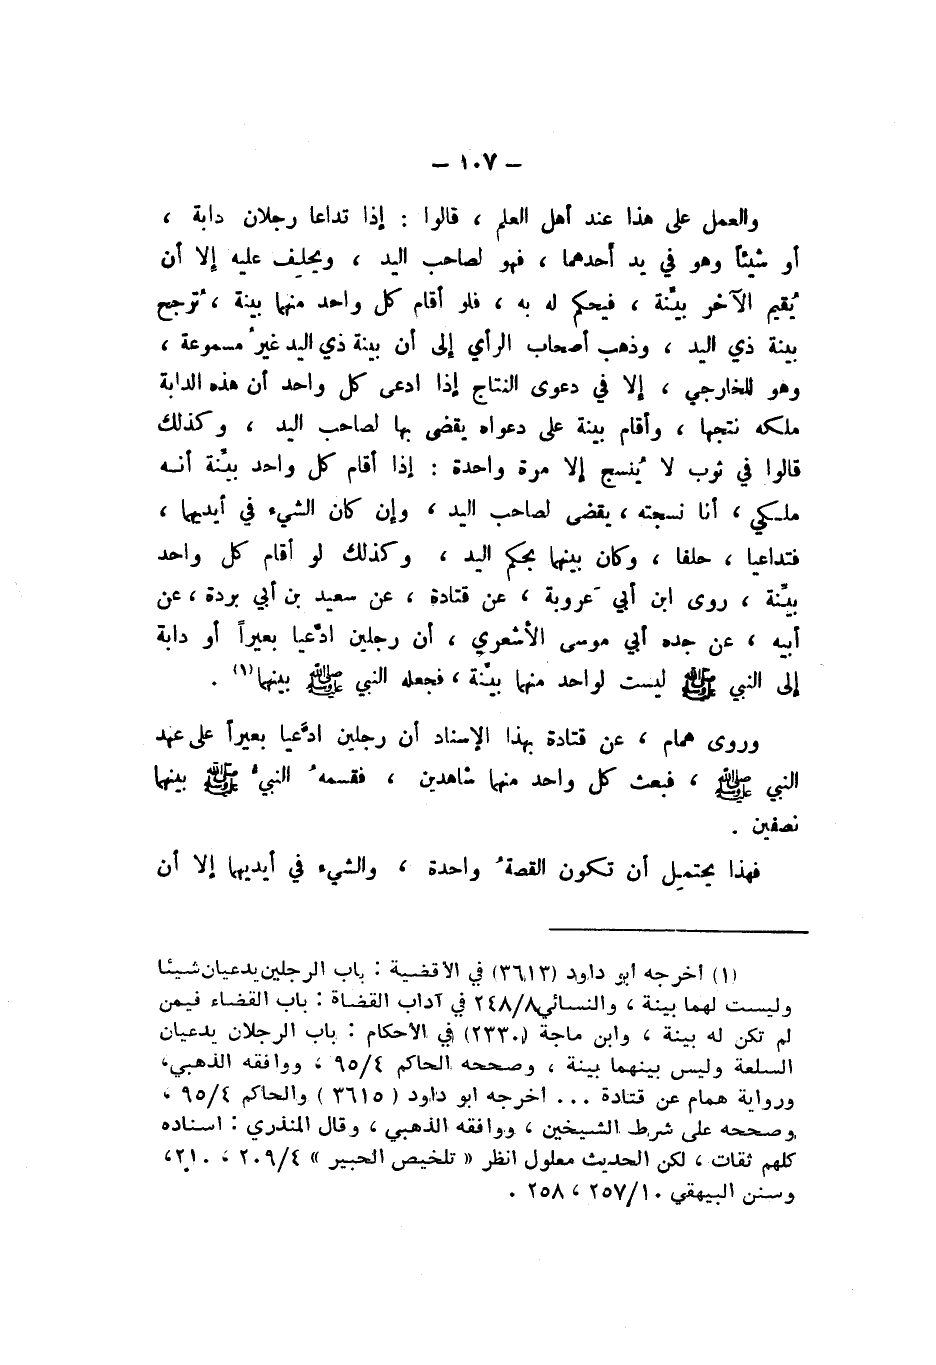 — ١٠٧ —
والعمل على هذا عند أهل العلم ، قالوا : إذا تداعا رجلان دابة ،
أو شيئاً وهو في يد أحدهما ، فهو لصاحب اليد ، ويحلف عليه إلا أن
يُقيم الآخر بيِّنة ، فيحكم له به ، فلو أقام كل واحد منهما بينة ، تُرجح
بينة ذي اليد ، وذهب أصحاب الرأي إلى أن بينة ذي اليد غيرُ مسموعة ،
وهو للخارجي ، إلا في دعوى النتاج إذا ادعى كل واحد أن هذه الدابة
ملكه نتجها ، وأقام بينة على دعواه يقضى بها لصاحب اليد ، وكذلك
قالوا في ثوب لا يُنسج إلا مرة واحدة : إذا أقام كل واحد بيِّنة أنه
ملكي ، أنا نسجته ، يقضى لصاحب اليد ، وإن كان الشيء في أيديهما ،
فتداعيا ، حلفا ، وكان بينهما بحكم اليد ، وكذلك لو أقام كل واحد
بيِّنة ، روى ابن أبي عَروبة ، عن قتادة ، عن سعيد بن أبي بردة ، عن
أبيه ، عن جده أبي موسى الأشعري ، أن رجلين ادَّعيا بعيراً أو دابة
إلى النبي ﷺ ليست لواحد منهما بيِّنة ، فجعله النبي ﷺ بينهما (١) .
وروى همام ، عن قتادة بهذا الإسناد أن رجلين ادَّعيا بعيراً على عهد
النبي ﷺ ، فبعث كل واحد منهما شاهدين ، فقسمهُ النبيُّ ﷺ بينهما
نصفين .
فهذا يحتمل أن تكون القصةُ واحدة ، والشيء في أيديهما إلا أن
(١) أخرجه أبو داود (٣٦١٣) في الأقضية : باب الرجلين يدعيان شيئا
وليست لهما بينة ، والنسائي ٢٤٨/٨ في آداب القضاة : باب القضاء فيمن
لم تكن له بينة ، وابن ماجة (٢٣٣٠) في الأحكام : باب الرجلان يدعيان
السلعة وليس بينهما بينة ، وصححه الحاكم ٩٥/٤ ، ووافقه الذهبي،
ورواية همام عن قتادة ... أخرجه أبو داود ( ٣٦١٥ ) والحاكم ٩٥/٤ ،
وصححه على شرط الشيخين ، ووافقه الذهبي ، وقال المنذري : اسناده
كلهم ثقات ، لكن الحديث معلول انظر « تلخيص الحبير » ٢٠٩/٤ ، ٢١٠،
وسنن البيهقي ٢٥٧/١٠ ، ٢٥٨ .